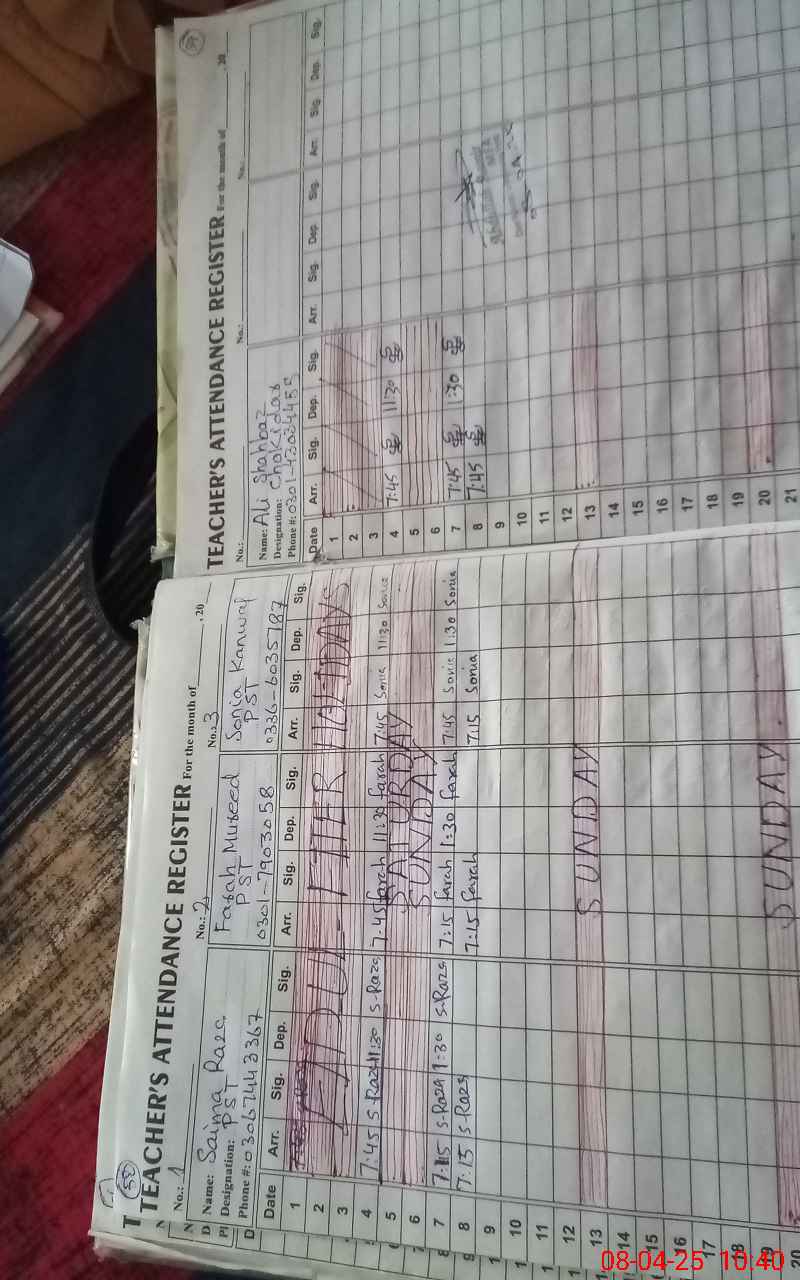 58
TEACHER'S ATTENDANCE REGISTER For the month of , 20
No.: 1 No.: 2 No.: 3
Name: Saima Raza Farah Museed Sonia Kanwal
Designation: PST PST PST
Phone #: 03067443367 0301-7903058 0336-6035787
Date Arr. Sig. Dep. Sig. Arr. Sig. Dep. Sig. Arr. Sig. Dep. Sig.
1
2 EID UL-FITER HOLIDAYS
3
4 7:45 S-Raza 11:30 S-Raza 7.45 farah 11:30 farah 7:45 Sonia 11:30 Sonia
5 SATURDAY
6 SUNDAY
7 7:15 S-Raza 1:30 S-Raza 7:15 farah 1:30 farah 7:45 Sonia 1:30 Sonia
8 7:15 S-Raza 7:15 farah 7:15 Sonia
9
10
11
12
13 SUNDAY
14
15
16
17
18
19
20 SUNDAY
TEACHER'S ATTENDANCE REGISTER For the month of , 20
No.: No.: No.:
Name: Ali Shahbaz
Designation: Chokidar
Phone #: 0301-4302445
Date Arr. Sig. Dep. Sig. Arr. Sig. Dep. Sig. Arr. Sig. Dep. Sig.
1
2
3
4 7:45 11:30
5
6
7 7:45 1:30
8 7:45
9
10
11
12
13
14
15
16
17
18
19
20
21
08-04-25 10:40